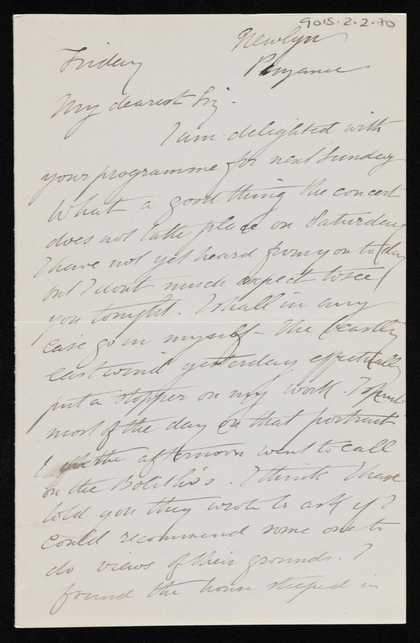 9015-2-2-70
Newlyn
Friday Penzance
My dearest Liz.
I am delighted with
your programme for next Sunday
What a good thing the concert
does not take place on Saturday
I have not yet heard from you to day
but I dont much expect to see
you tonight. I shall in any
case go in myself - The beastly
east wind yesterday effectually
put a stopper on my work. I spent
most of the day on that portrait
the afternoon went to call
on the Bolitho's. I think I have
told you they wrote to ask if I
could recommend some one to
do views of their grounds. I
found the house steeped in